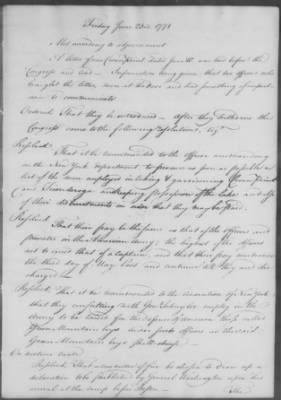 Friday June 23d 1775
Met according to adjournment
A letter from Crown Point dated June 10th was laid before the
Congress and read — Information being given that two officers who
brought the letter, were at the door and had something of import-
ance to communicate
Ordered That they be introduced — After they withdrew the
Congress came to the following resolutions, viz
Resolved That it be recommended to the officer commanding
in the New York department to procure as soon as possible a
list of the men employed in taking & garrisoning Crown Point
and Ticonderoga and keeping possession of the Lakes and also
of their disbursments in order that they may be paid.
Resolved
That their pay be the same as that of the officers and
privates in the American army; the highest of the officers
not to exceed that of a captain, and that their pay commence
the third day of May last and continue till they are dis-
charged
Resolved That it be recommended to the convention of New York
that they consulting with Gen Schuyler employ in the
army to be raised for the defence of America those called
Green Mountain boys under such officers as the said
Green Mountain boys shall chuse
On motion made
Resolved That a committee of five be chosen to draw up a
declaration to be published by General Washington upon his
arrival at the camp before Boston